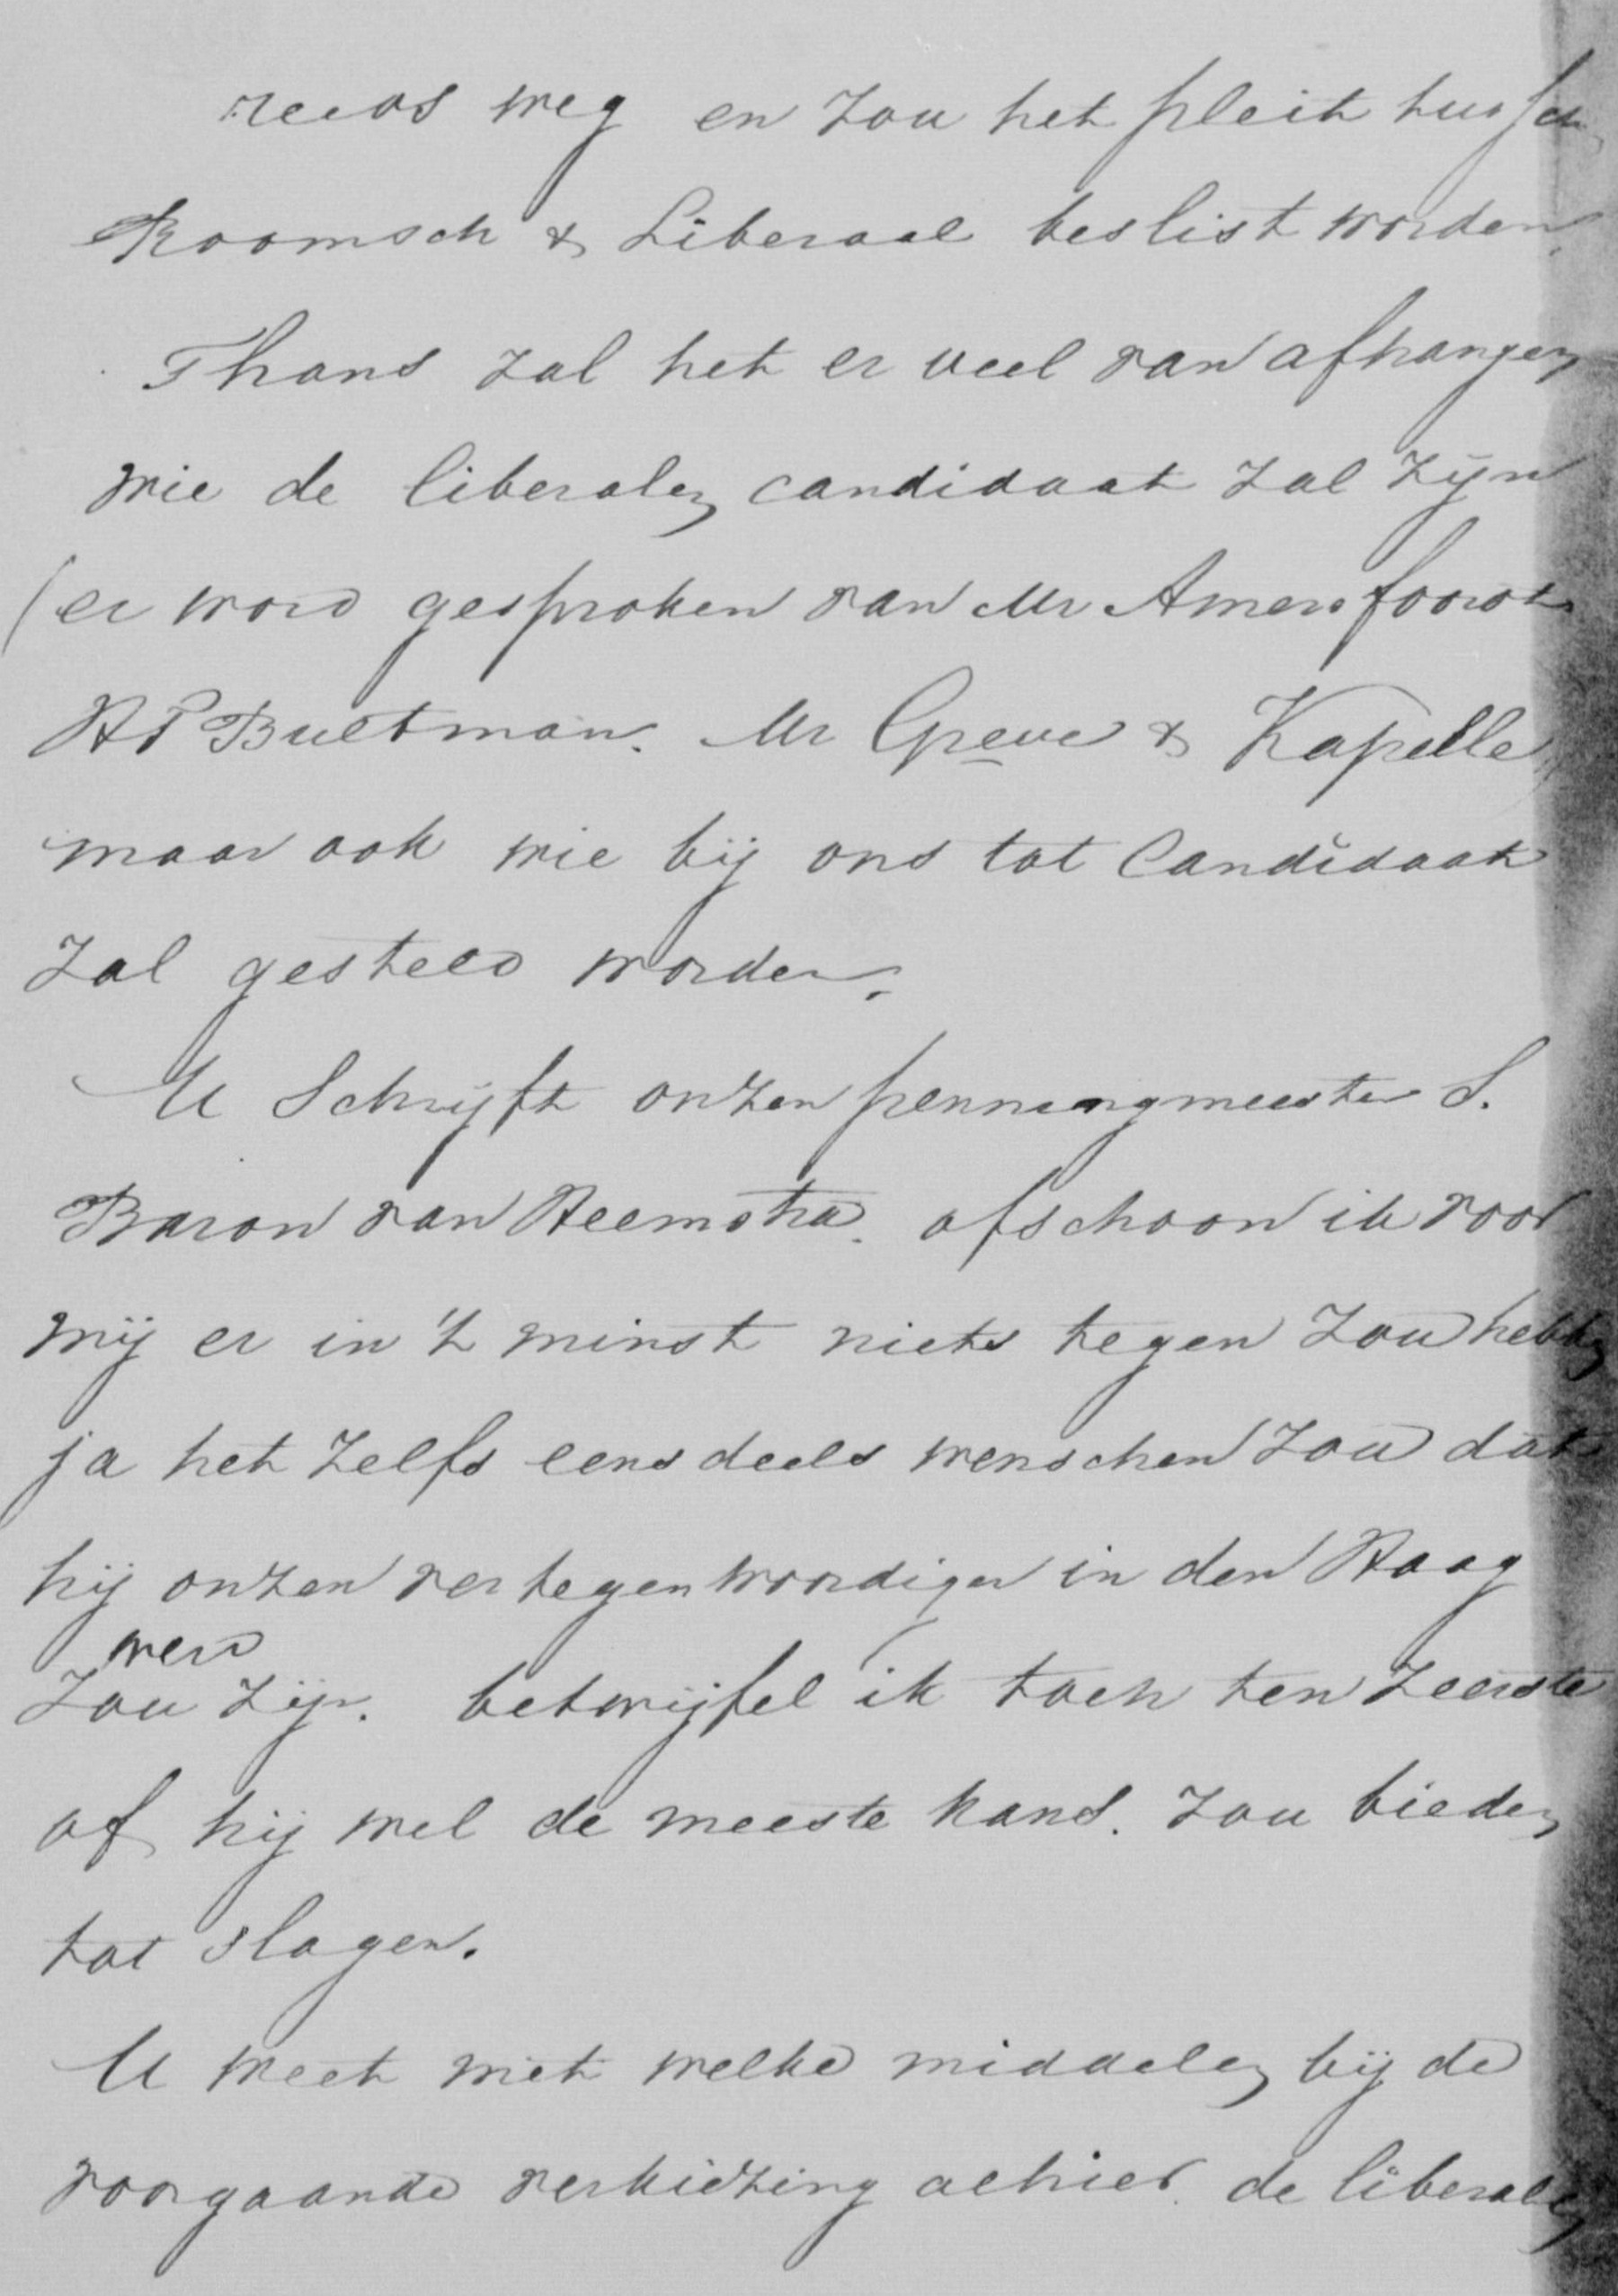 reeds weg en zou het pleit tusschen
Roomsch & Liberaal beslist worden.
Thans zal het er veel van afhangen
wie de liberalen candidaat zal zijn
(er word gesproken van Mr Amersfoordt
HP Bultman. Mr Greve & Kapelle
maar ook wie bij ons tot Candidaat
zal gesteld worden.
U Schrijft onzen penningmeester S.
Baron van Heemstra. ofschoon ik voor
mij er in 't minst niets tegen zou hebben
ja het zelfs eensdeels wenschen zou dat
hij onzen vertegenwoordiger in den Haag
werd
zou zijn. betwijfel ik toch ten zeerste
of hij wel de meeste kans. zou bieden
tot slagen.
U weet met welke middelen bij de
voorgaande verkiezing alhier de liberalen